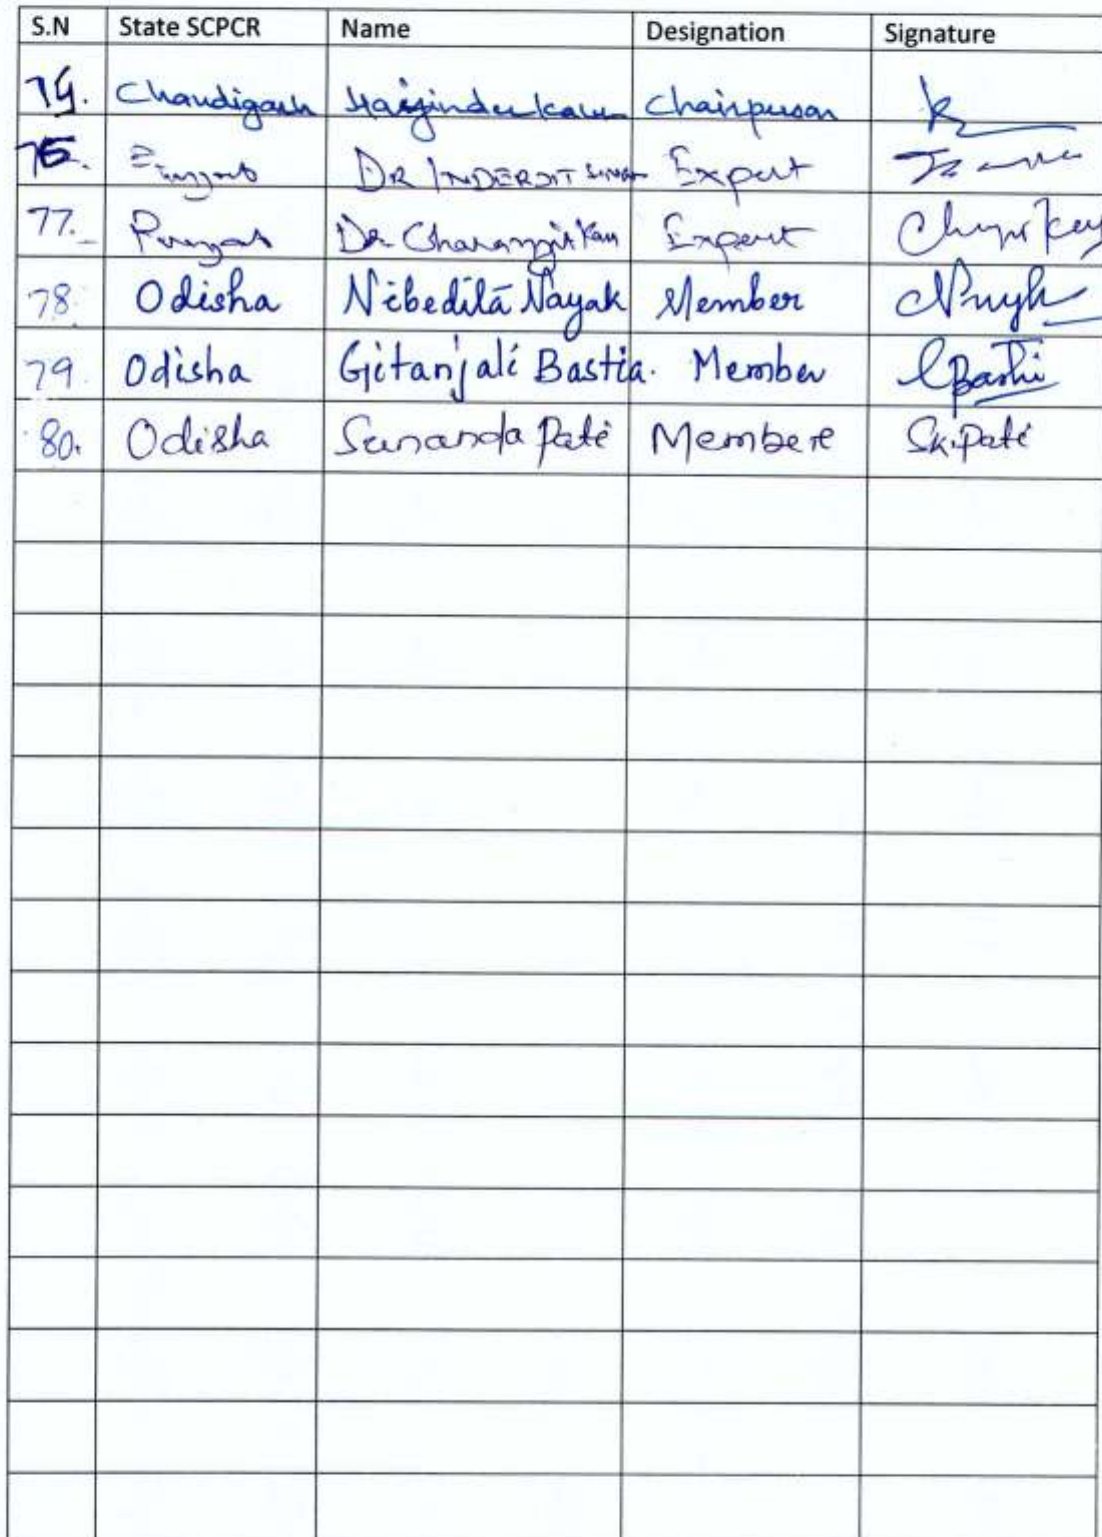 S.N State SCPCR Name Designation Signature
Chandigarh Harjinder Kaur Chairperson
Punjab DR INDERJIT SINGH Expert
77. Punjab Dr Charanjit Kaur Expert
78. Odisha Nibedita Nayak Member
79. Odisha Gitanjali Bastia. Member
80. Odisha Sunanda Pati Member SK.Pati